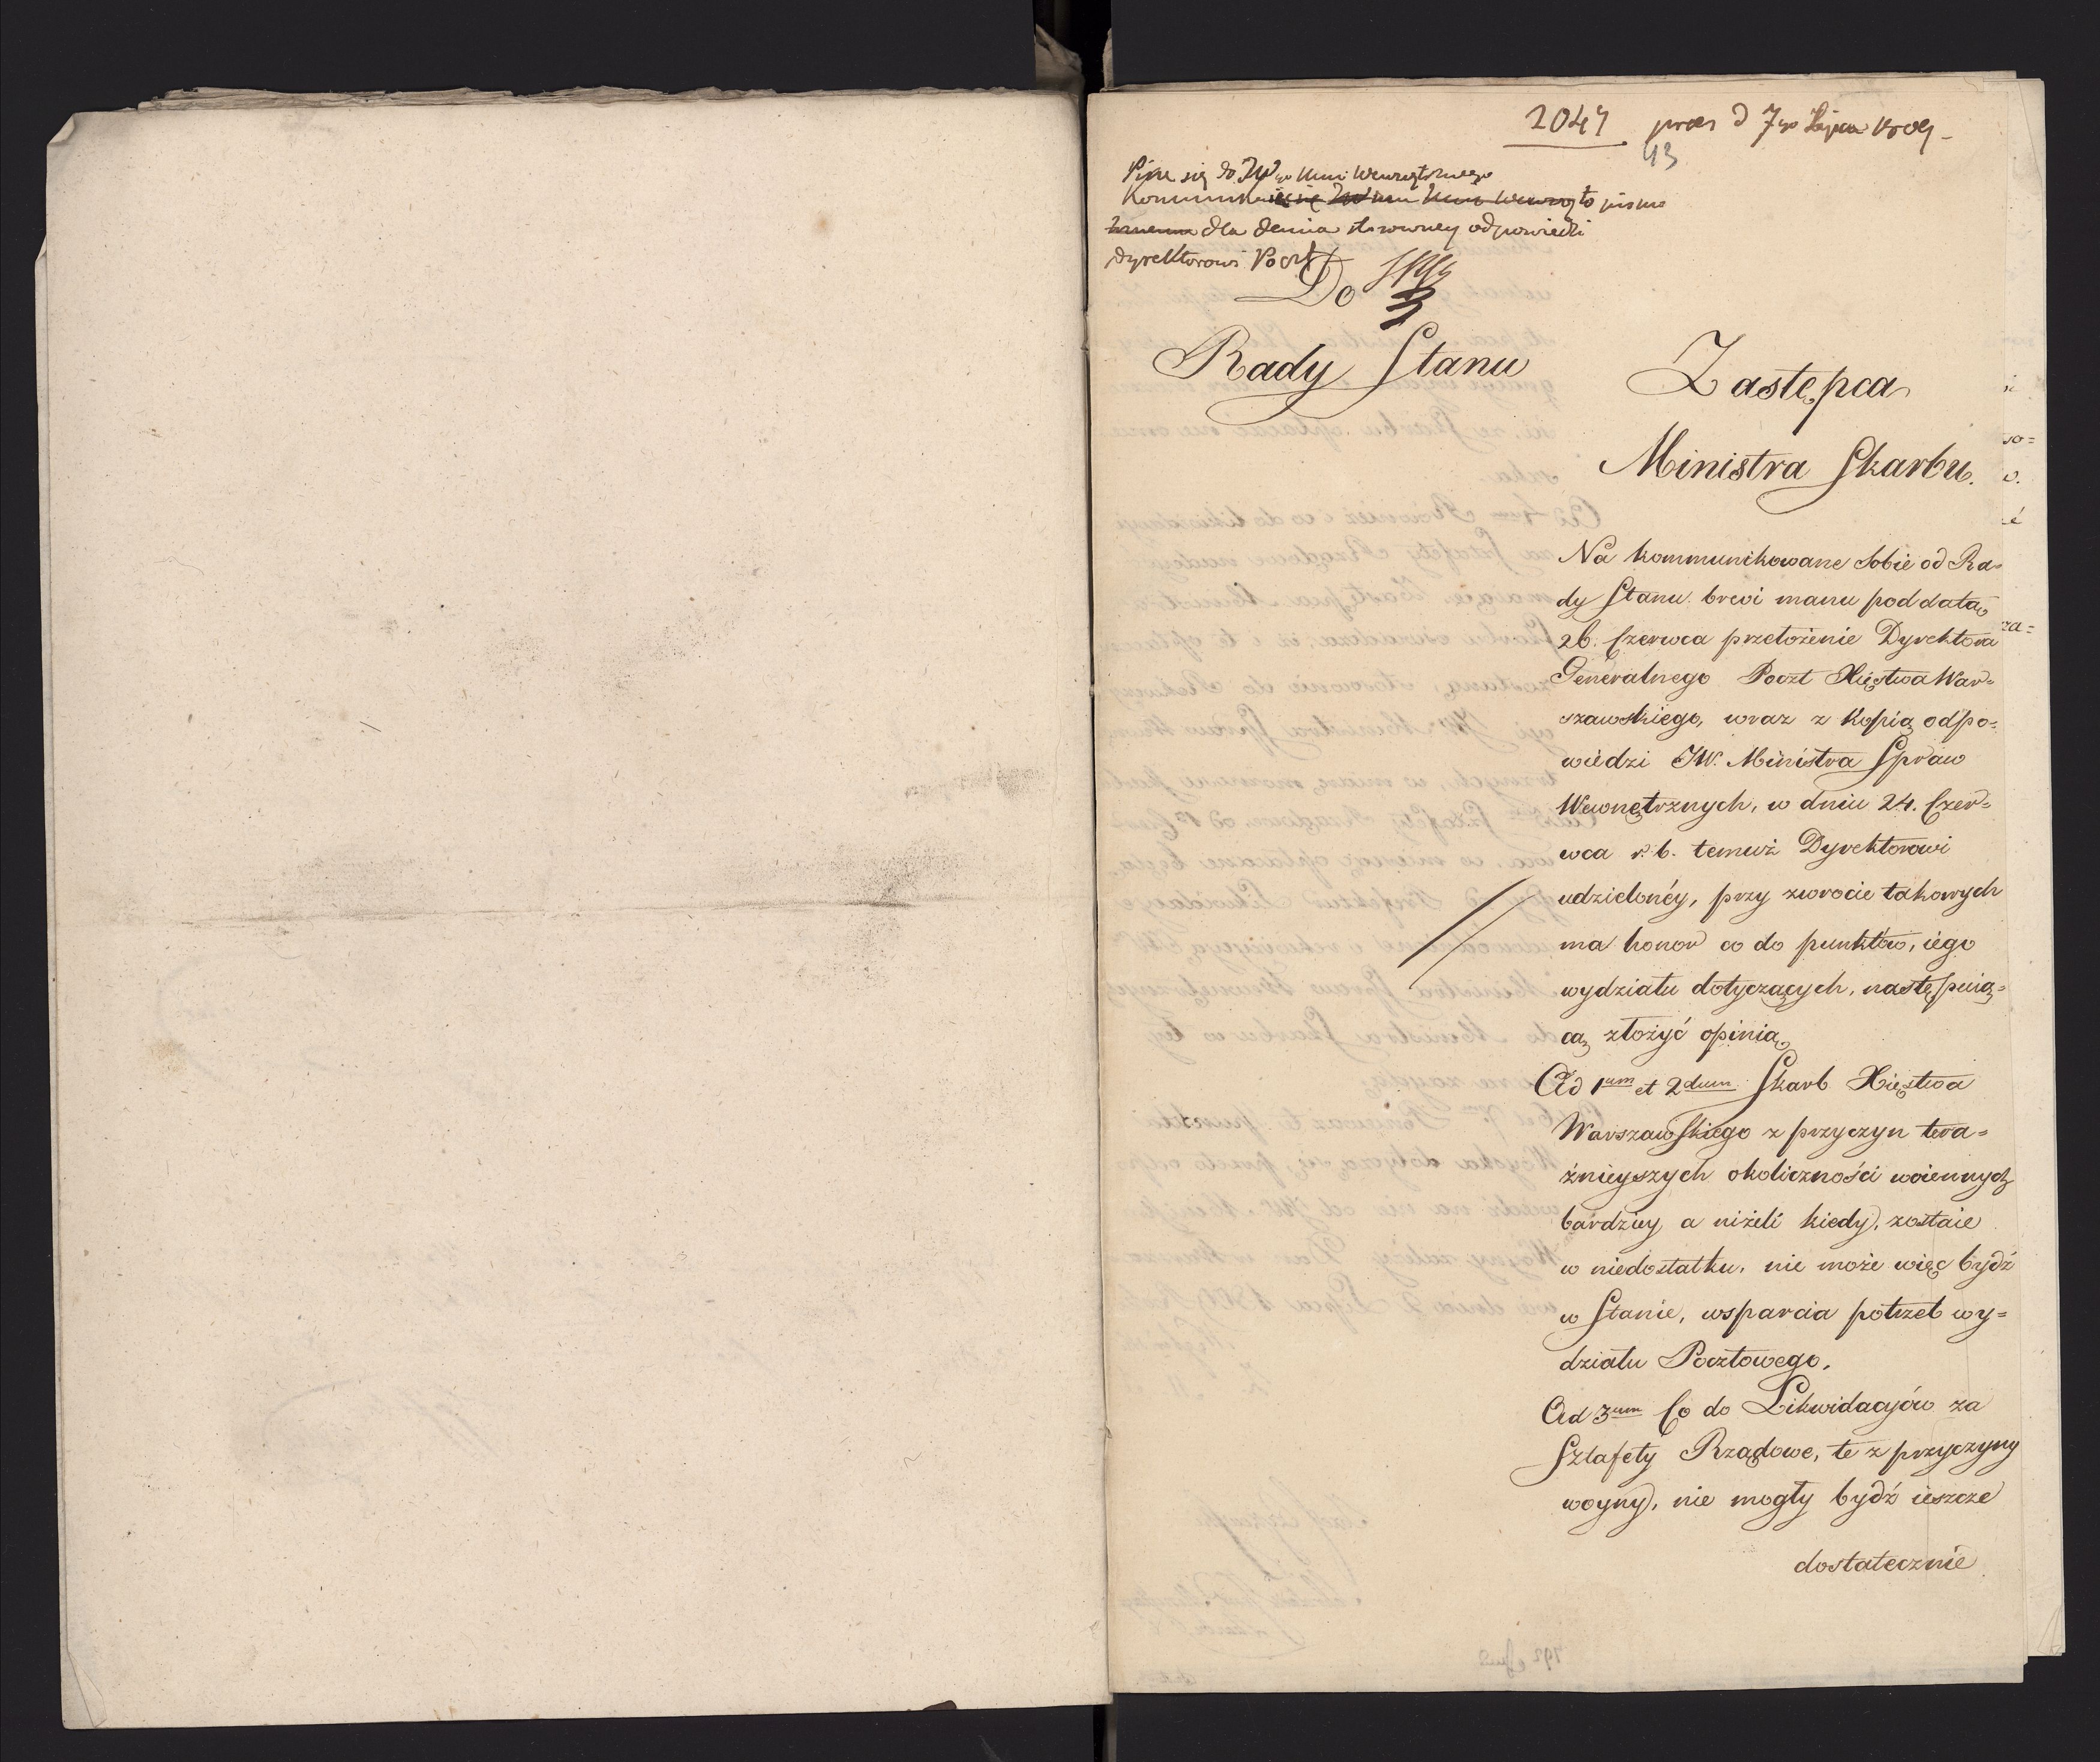 2047 praes d 7go Lipca 1809
43
Pisze się do JW Mini Wewnętrznego
to pismo
dla dania stosowney odpowiedzi
Dyrektorowi Poczt
Do
Rady Stanu
Zastępca
Ministra Skarbu.
Na kommunikowane Sobie od Ra=
dy Stanu brevi manu pod datą
26. Czerwca przełożenie Dyrektora
Generalnego Poczt Xięstwa War=
szawskiego, wraz z kopią odpo=
wiedzi JW. Ministra Spraw
Wewnętrznych, w dniu 24. Czer=
wca r. b. temuż Dyrektorowi
udzielonéy, przy zwrocie takowych
ma honor co do punktów, iego
wydziału dotyczących, następuią=
cą złożyć opinią.
Ad 1um et 2dum Skarb Xięstwa
Warszawskiego z przyczyn tera=
źnieyszych okoliczności woiennych
bardziey a niżeli kiedy, zostaie
w niedostatku, nie może więc bydź
w Stanie, wsparcia potrzeb wy=
działu Pocztowego.
Ad 3um Co do Likwidacyów za
Sztafety Rządowe, te z przyczyny
woyny, nie mogły bydź ieszcze
dostatecznie